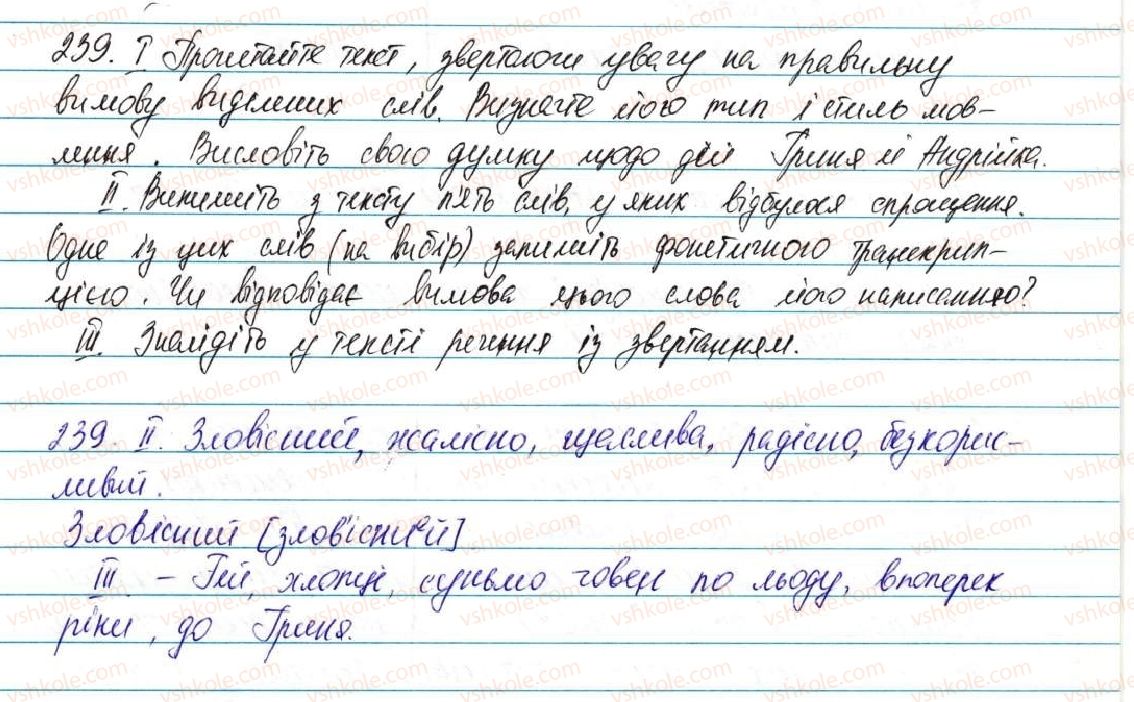 239. І Прочитайте текст, звертаючи увагу на правильну
вимову виділених слів. Визначте його тип і стиль мов-
лення. Висловіть свою думку щодо дій Гриня й Андрійка.
ІІ. Випишіть з тексту п'ять слів, у яких відбулося спрощення.
Одне із цих слів (на вибір) запишіть фонетичною транскрип-
цією. Чи відповідає вимова цього слова його написанню?
ІІІ. Знайдіть у тексті речення із звертанням.
239. ІІ. Зловісний, жалісно, щаслива, радісно, безкорис-
ливий.
Зловісний [злов'існиeй]
ІІІ – Гей, хлопці, суньмо човен по льоду, впоперек
ріки, до Гриня.